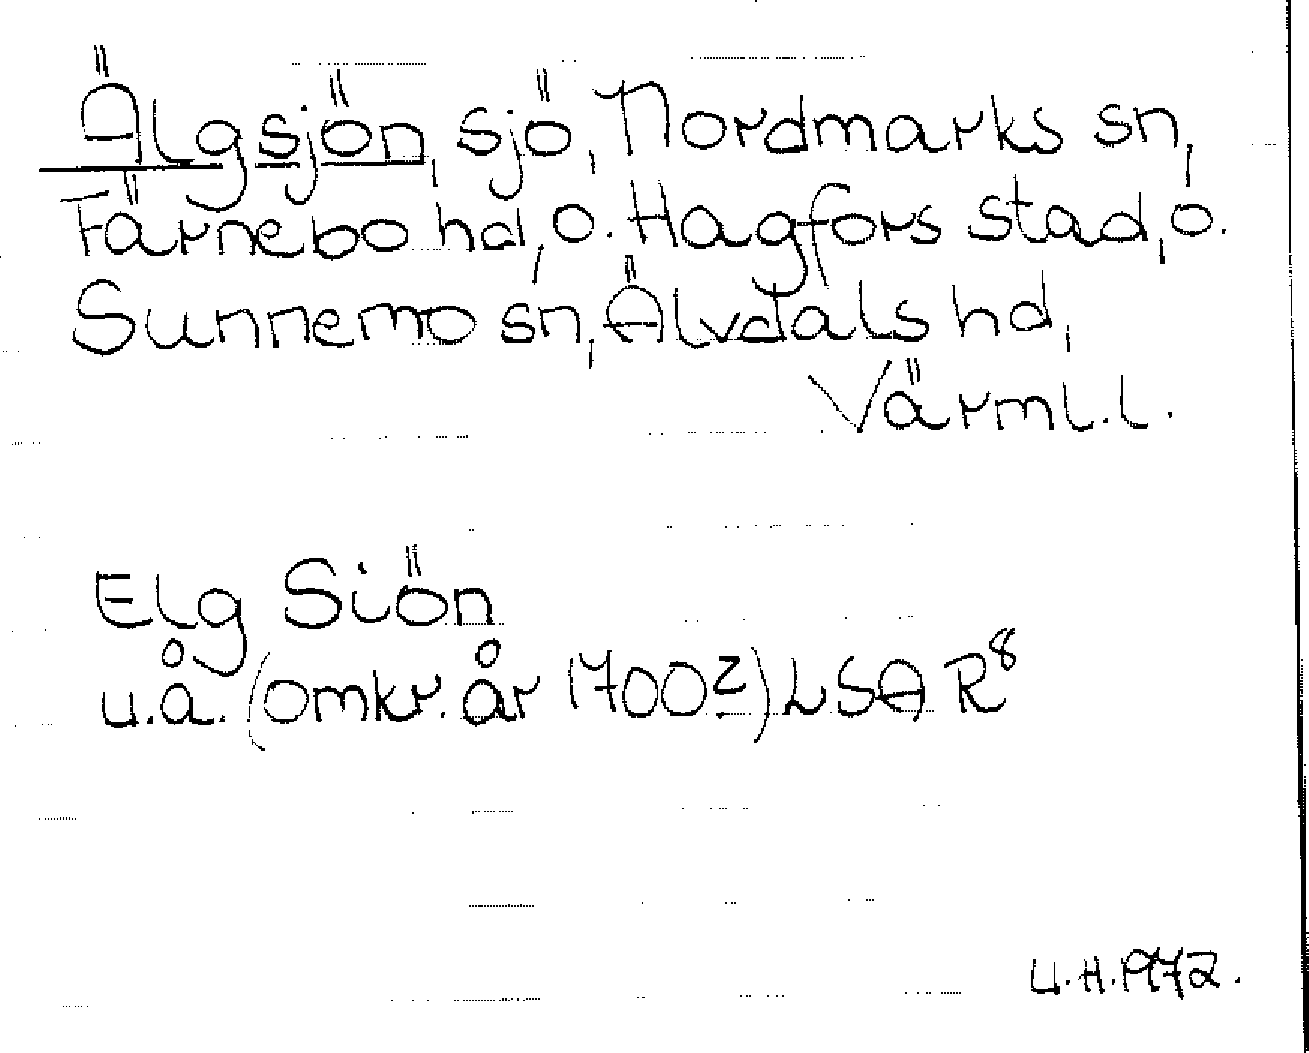 Älgsjön, sjö, Nordmarks sn,
Färnebo hd, o. Hagfors stad, o.
Sunnemo sn, Älvdals hd,
Värml.l.
Elg Siön
u.å. (omkr. år 1700?) LSA R8
U.H. 1972.